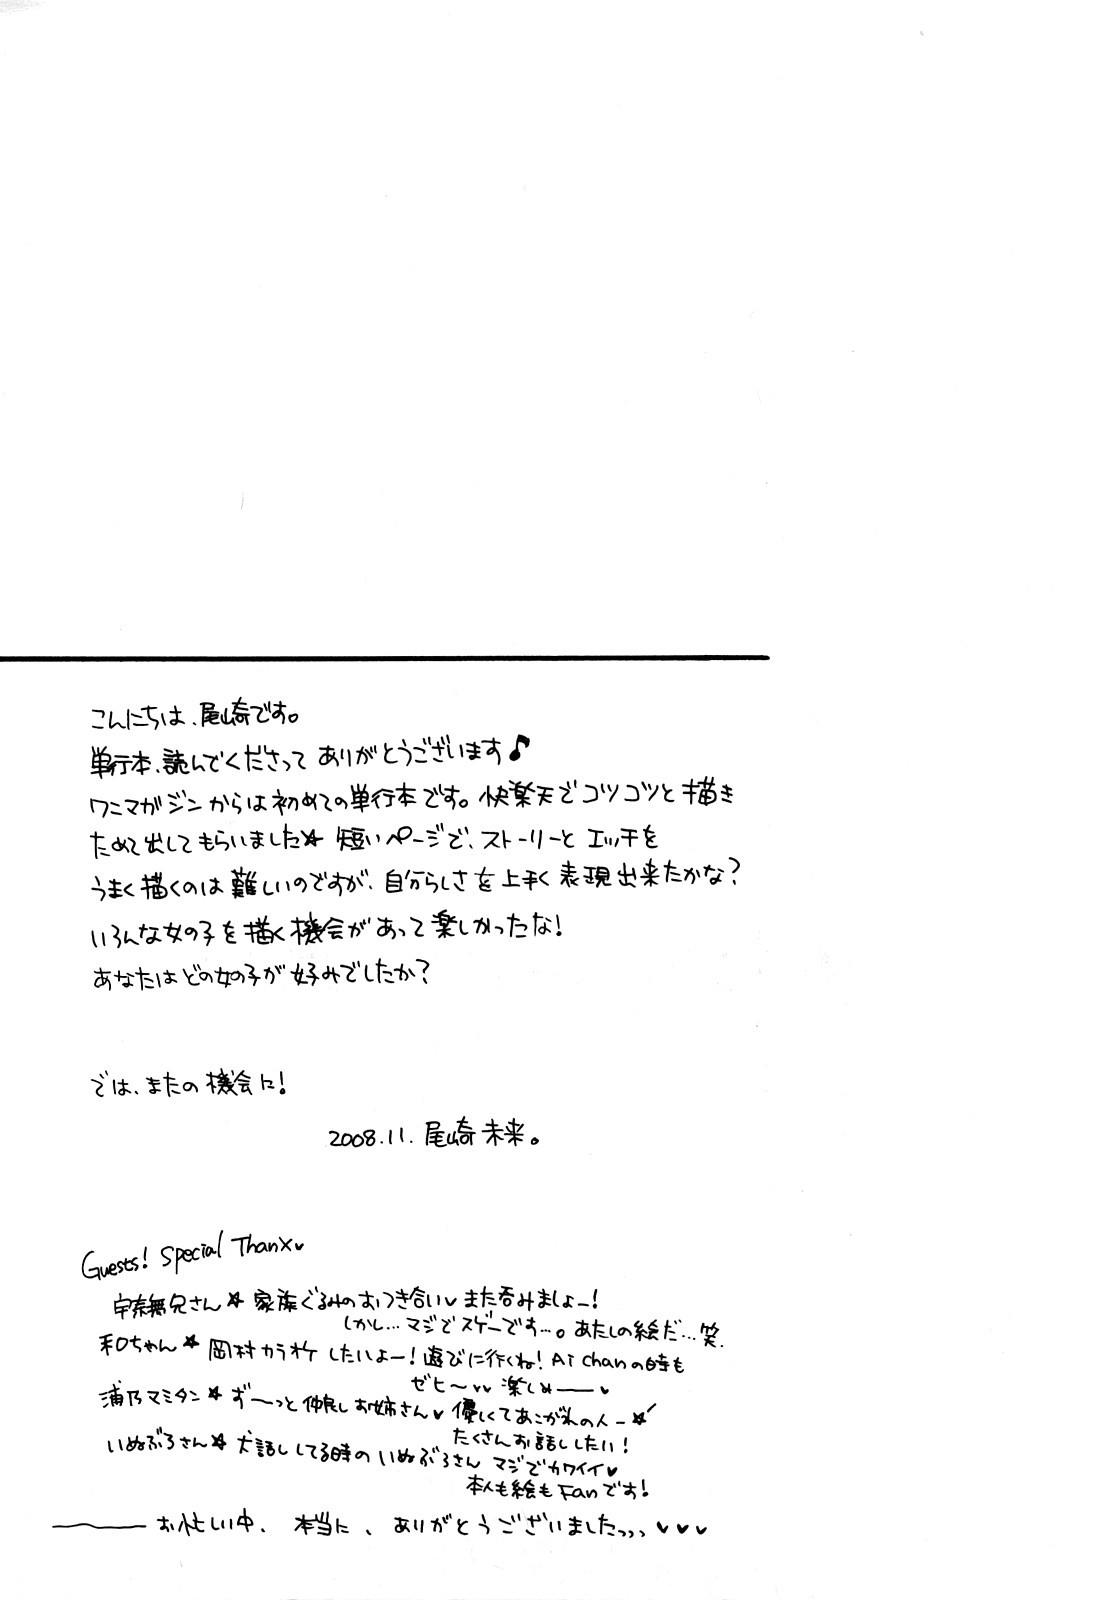 こんにちは、尾崎です。
単行本、読んでくださって ありがとうございます♪
ワニマガジンからは初めての単行本です。快楽天でコツコツと描き
ためて出してもらいました☆ 短いページで、ストーリーと エッチを
うまく描くのは難しいのですが、自分らしさを上手く表現出来たかな?
いろんな女の子を描く機会があって楽しかったな!
あなたはどの女の子が好みでしたか?
では、またの機会に!
2008.11. 尾崎未来。
Guests! Special Thanx♥
宇奈無兄さん☆ 家族ぐるみのおつき合い♥また呑みましょー!
しかし…マジでスゲーです…。あたしの絵だ…笑.
和ちゃん☆ 岡村カラオケしたいよー!遊びに行くね!Ai chanの時も
ゼヒ〜♥♥ 楽しめ――♥
浦乃マミタン☆ ず〜っと仲良しお姉さん♥ 優しくてあこがれの人ー☆
たくさんお話ししたい!
いぬぶろさん☆ 犬話ししてる時のいぬぶろさん マジでカワイイ♥
本人も絵もFanです!
――お忙しい中、本当に、ありがとうございましたっっっ♥♥♥